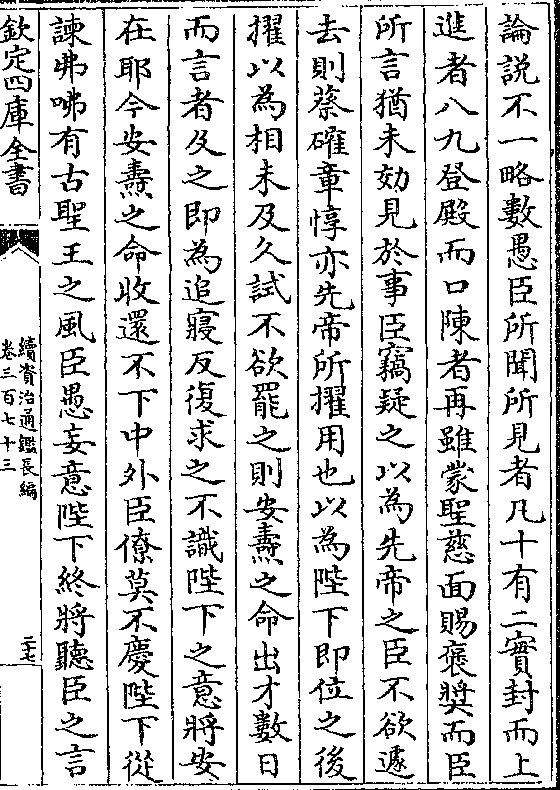 論説不一略數愚臣所聞所見者凡十有二實封而上
進者八九登殿而口陳者再雖蒙聖慈面賜褒奬而臣
所言猶未効見於事臣竊疑之以為先帝之臣不欲遽
去則蔡確章惇亦先帝所擢用也以為陛下即位之後
擢以為相未及久試不欲罷之則安燾之命出才數日
而言者及之即為追寢反復求之不識陛下之意將安
在耶今安燾之命收還不下中外臣僚莫不慶陛下從
諫弗咈有古聖王之風臣愚妄意陛下終將聽臣之言
欽定四庫全書
續資治通鑑長編
卷三百七十三
二十七